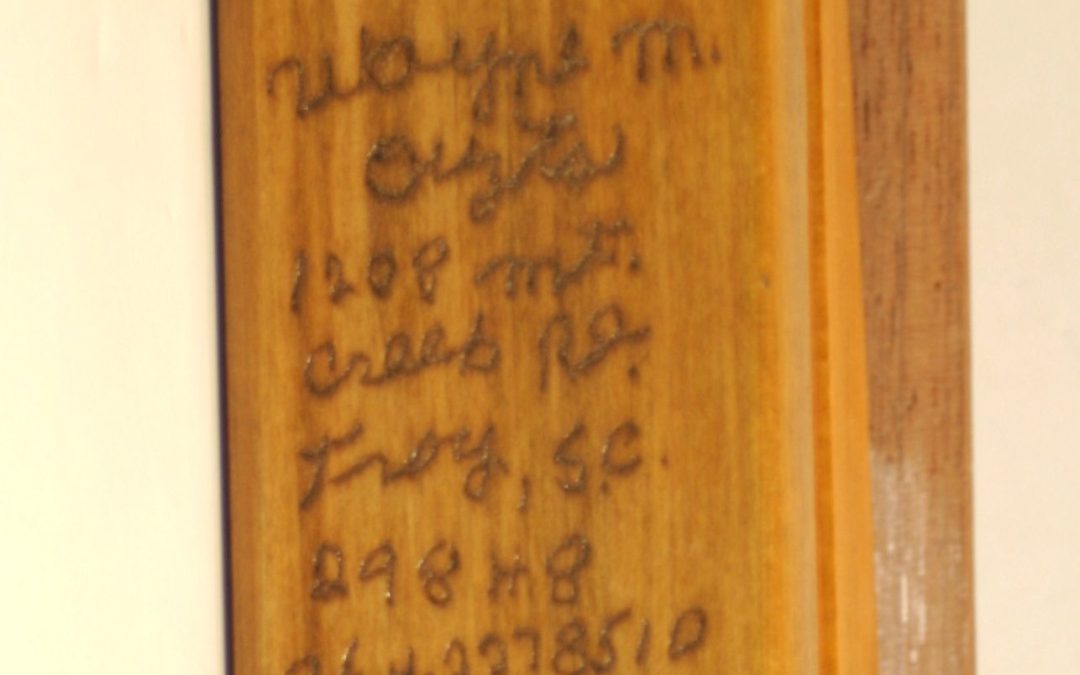 Wayne M.
Ouzts
1208 mt.
Creek Rd.
Troy, S.C.
29848
8510